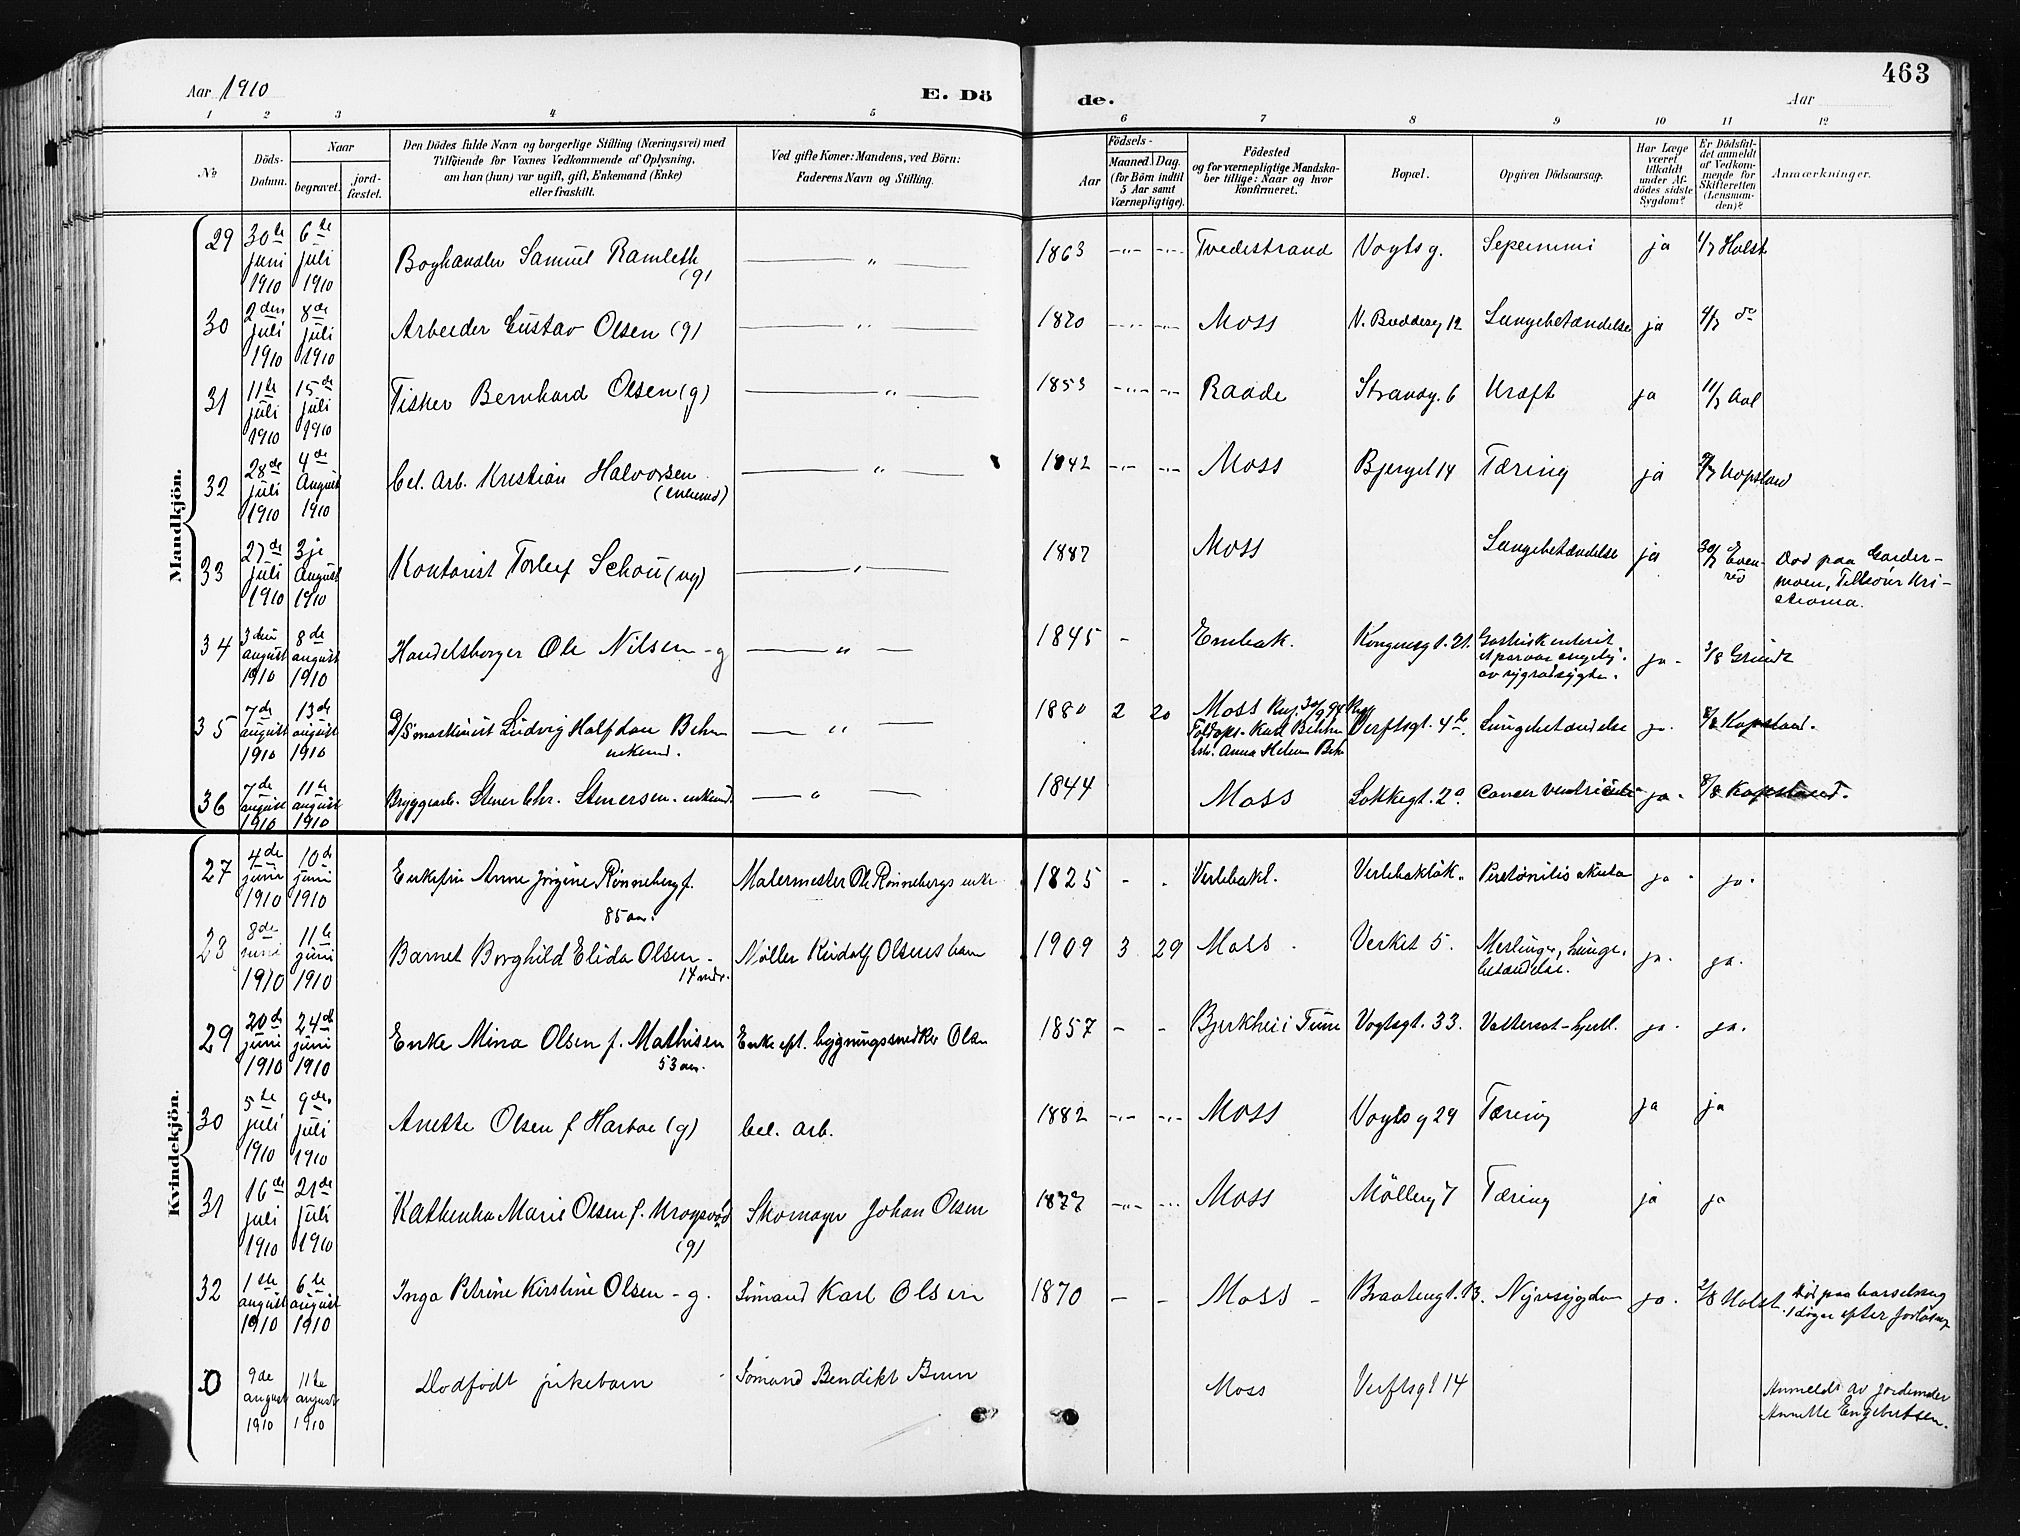 463
Aar 1910
E. Dö
de.
Aar
1 2 3 4 5 6 7 8 9 10 11 12
No
Döds-
Datum.
Naar
begravet.
jord-
fæstet.
Den Dödes fulde Navn og borgerlige Stilling (Næringsvei) med
Tilföiende for Voxnes Vedkommende af Oplysning,
om han (hun) var ugift, gift, Enkemand (Enke)
eller fraskilt.
Ved gifte Koner: Mandens, ved Börn:
Faderens Navn og Stilling.
Födsels-
Aar
Maaned.
Dag.
(for Börn indtil
5 Aar samt
Værnepligtige).
Födested
og for værnepligtige Mandska-
ber tillige: Naar og hvor
konfirmeret.
Bopæl.
Opgiven Dödsaarsag.
Har Læge
været
tilkaldt
under Af-
dödes sidste
Sygdom?
Er Dödsfal-
det anmeldt
af Vedkom-
mende for
Skifteretten
(Lensman-
den)?
Anmærkninger.
Mandkjön.
29 30te juni 1910 6te juli 1910 Boghandler Samuel Ramleth (g) 1863 Tvedestrand Vogtsg. ja 1/7 Holst
30 2den juli 1910 8de juli 1910 Arbeider Gustav Olsen (g) 1870 Moss 12 Lungebetændelse ja 4/7 do
31 11te juli 1910 15de juli 1910 Fisker Bernhard Olsen (g) 1853 Raade Strandg. 6 Kræft ja 11/7
32 28de juli 1910 4de August 1910 Cel. Arb. Kristian Halvorsen (enkemd) 1842 Moss Bjerget 14 Tæring ja Kopstad
33 27de juli 1910 3je August 1910 Kontorist Torleif Schou (ug) 1887 Moss Lungebetændelse ja 30/7 Evenrød Død paa Garder-
moen, Kri-
stiania.
34 3die august 1910 8de august 1910 Handelsborger Ole Nilsen - g 1845 - Kongensgt. 21. ja - 3/8
35 7de august 1910 13de august 1910 D/Smaskinist Ludvig Halfdan Behn enkemd. 1880 2 20 Moss Verftsgt. 4b. Lungebetændelse ja. 8/8 Kopstad.
Anna Helene
36 7de august 1910 11te august 1910 Bryggearb. Stener Chr. Stenersen. enkemd. 1844 Moss Løkkegt. 2a. Cancer ventriculi ja. 8/8 Kopstad.
Kvindekjön.
27 4de juni 1910 10de juni 1910 Enkefru Anne Jørgine Rønneberg f. 85 aar. Malermester Ole Rønnebergs enke 1825 - - Verlebakl. Verlebakløk. ja. ja.
28 8de juni 1910 11te juni 1910 Barnet Borghild Elida Olsen - 14 mdr. Møller Rudolf Olsens barn 1909 3 29 Moss Verket 5. Meslinger, Lunge-
betændelse. ja. ja.
29 20de juni 1910 24de juni 1910 Enke Mina Olsen f. Mathisen 53 aar. Enke eft. bygningssnedker Olsen 1857 - - Tune Vogtsgt. 33. ja. ja.
30 5te juli 1910 9de juli 1910 Anette Olsen f Harboe (g) Cel. Arb. 1882 Moss Vogtsg 29 Tæring ja ja
31 16de juli 1910 21de juli 1910 Kathinka Marie Olsen f. (g) Skomager Johan Olsen 1877 Moss Mølleg 7 Tæring ja ja
32 1ste august 1910 6te august 1910 Inga Petrine Kirstine Olsen - g. Sømand Karl Olsen 1870 - - Moss - Nyresygdom ja. 2/8 Holst. Død paa barselseng
1 døgn efter forløsning
0 9de august 1910 11te august 1910 Dødfødt pikebarn Sømand Bendikt Brun Moss Verftsgt 14 Anmeldt av jordemoder
Annette Engebretsen.